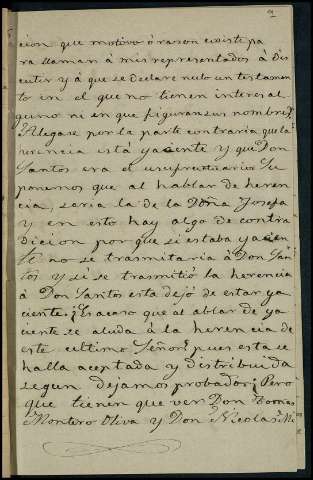 2
cion que motivo ó rason existe pa
ra llaman à mis representados à dis
cutir y á que se declare nulo un testamen
to en el que no tienen interes al
guno ni en que figuran sus nombres?
Allegase por la parte contraria que la
erencia está yacente y que Don
Santos era el usufructuario. Su
ponemos que al hablar de heren
cia, seria la de la Doña Josefa
y en esto hay algo de contra
dicion por que si estaba yacen
te no se trasmitaria à Don San
tos y si se trasmitió la herencia
à Don Santos esta dejó de estar ya
ciente. ¿Es acaso que al ablar de ya
cente se aluda à la herencia de
este ultimo Señor? pues esta se
halla aceptada y distribuida
segun dejamos probador ¿Pero
que tienen que ver Don
Montero Oliva y Don Nicolas